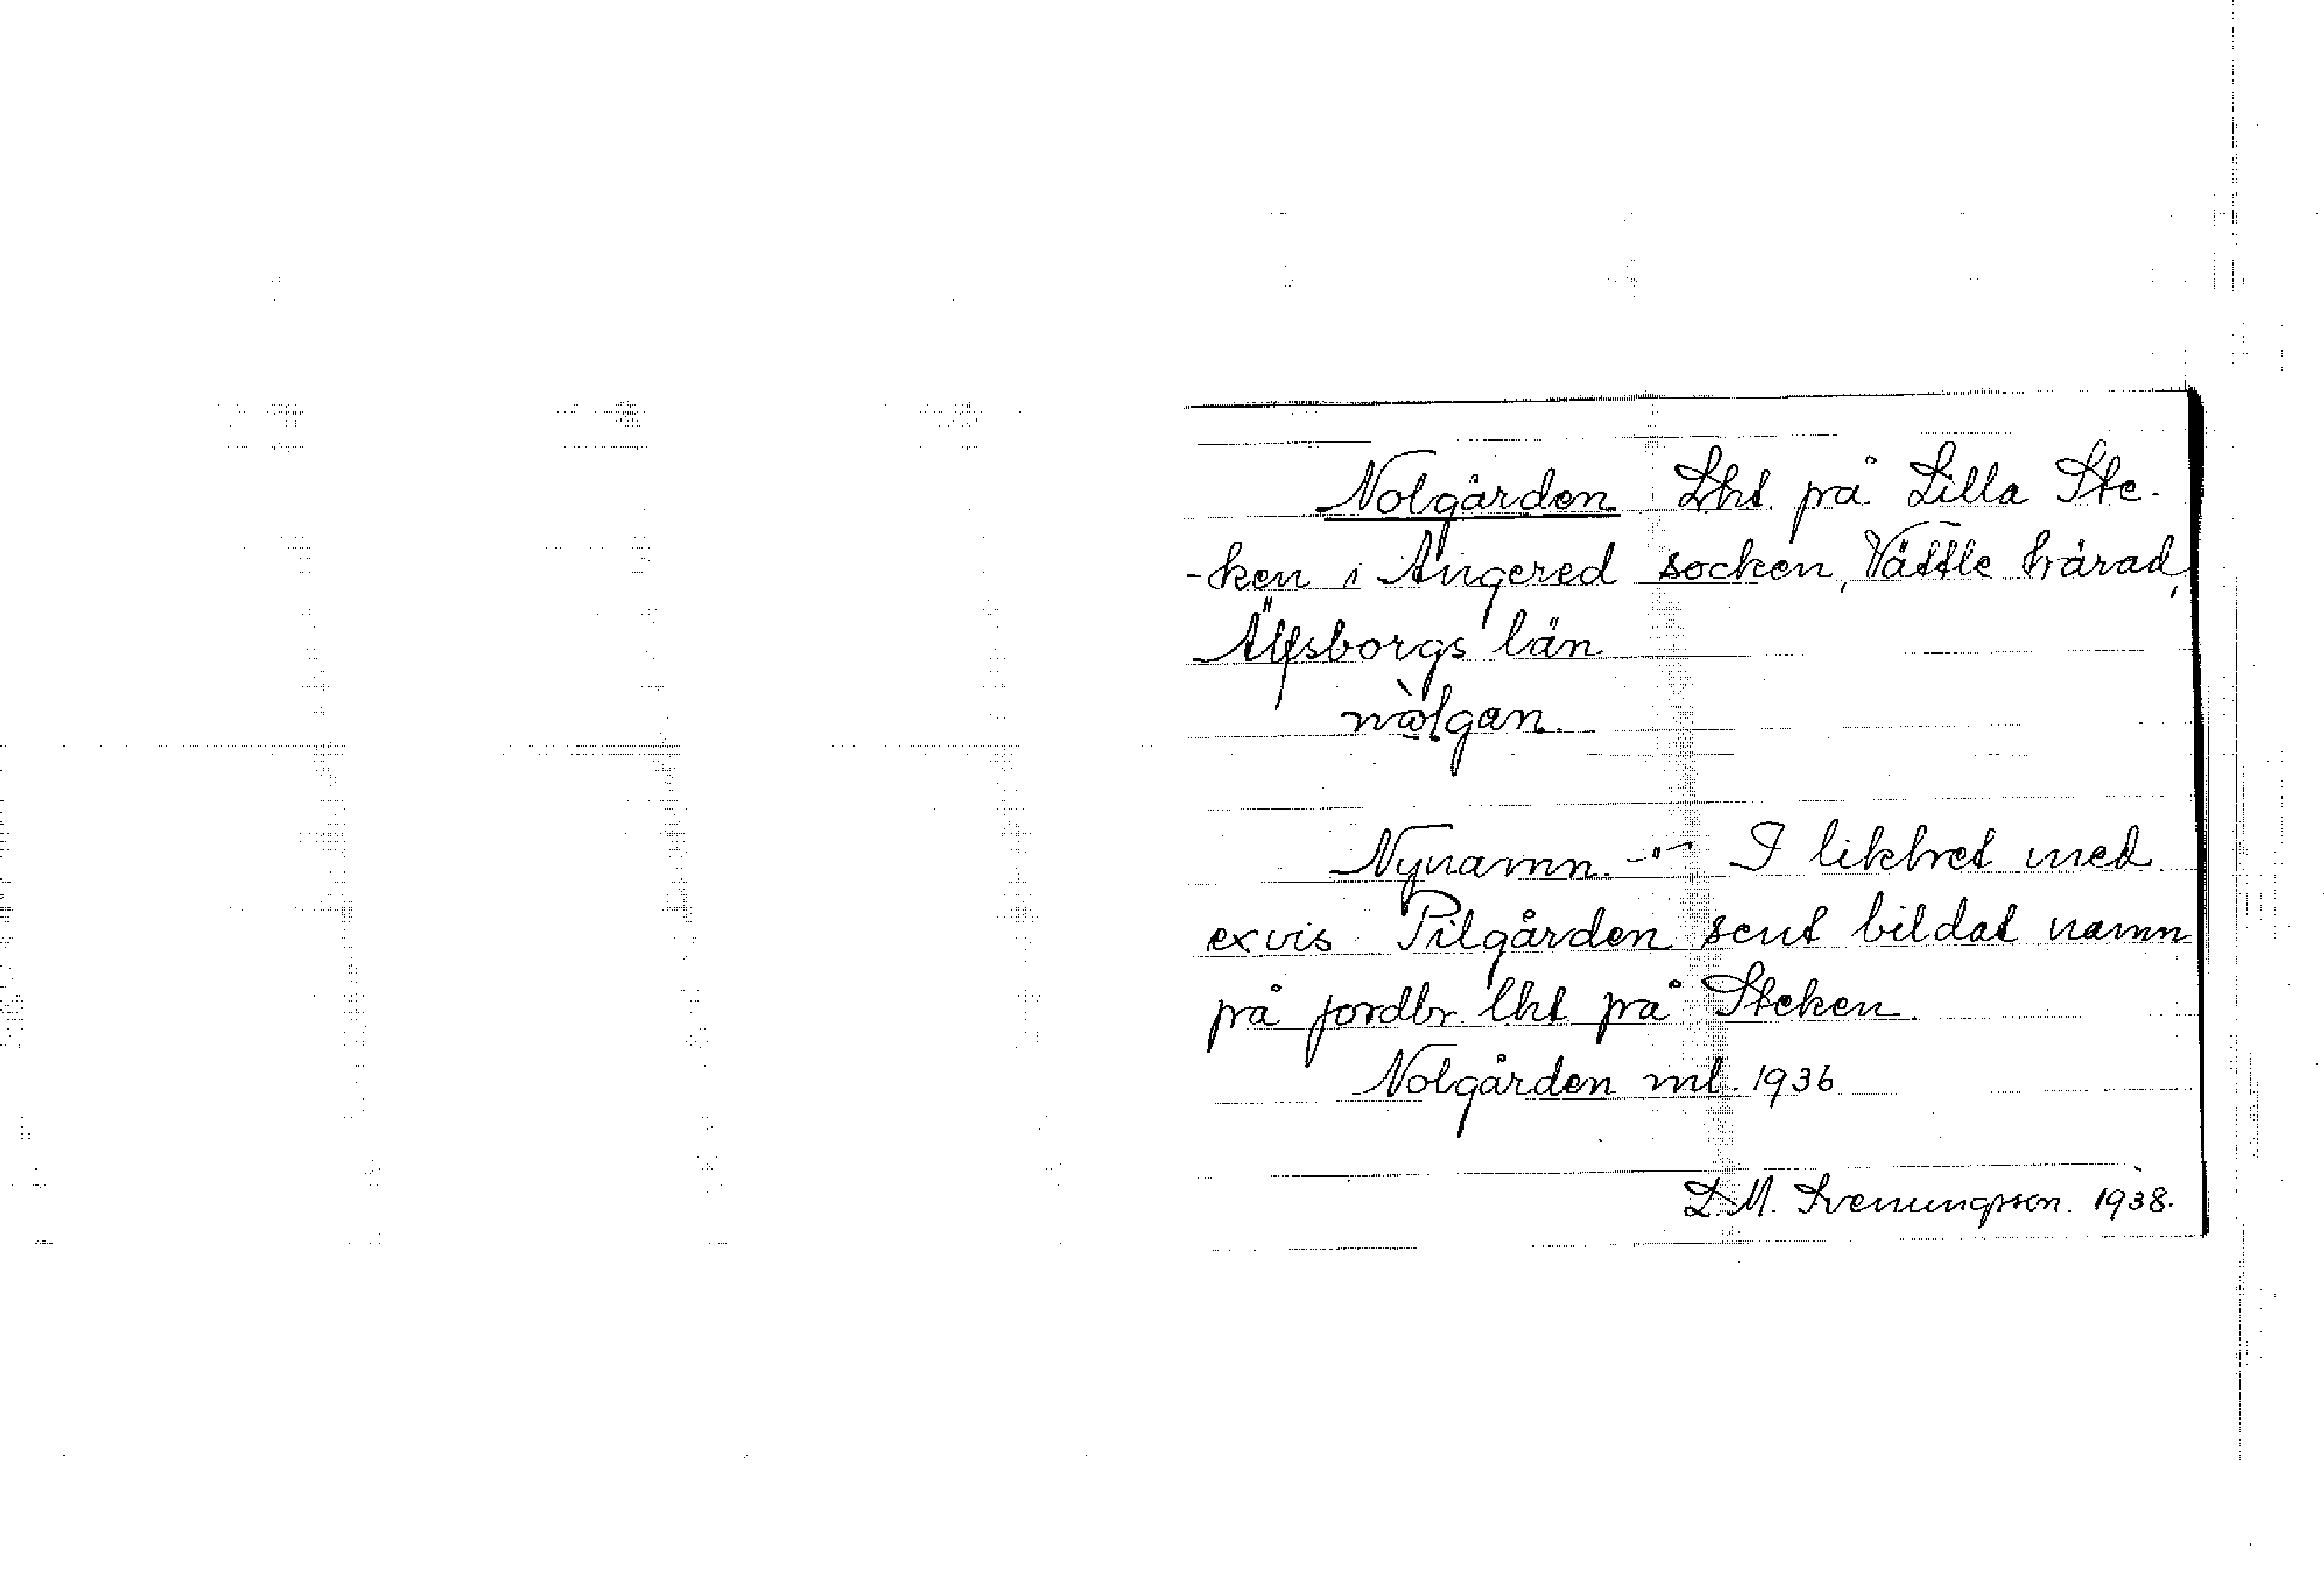 Nolgården Lht. på Lilla Ste-
-ken i Angered socken, Vättle härad,
Älfsborgs län
nòlgan.
Nynamn. -"- I likhet med
exvis Pilgården sent bildat namn
på jordbr. lht på Steken
Nolgården ml. 1936
D.M. Svenungsson. 1938.